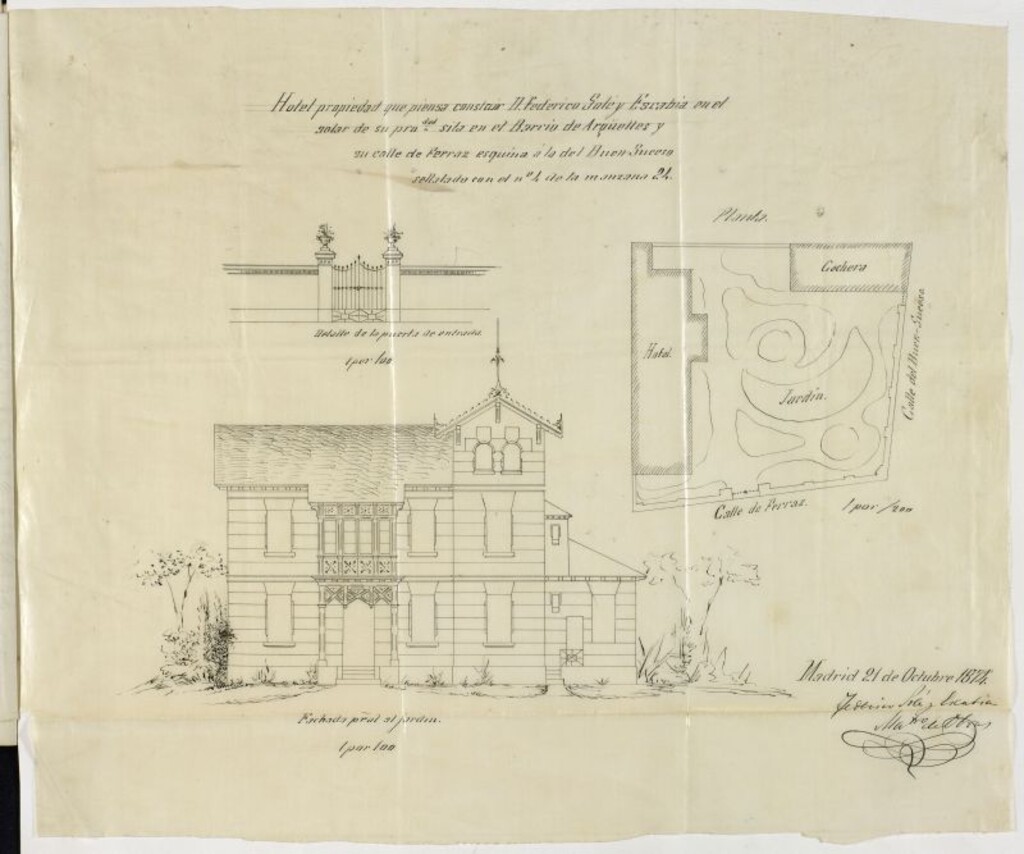 Hotel propiedad que piensa construir D. Federico Solé y Escabia en el
solar de su pro.ded sita en el Barrio de Argüelles y
su calle de Ferraz esquina á la del Buen-Suceso
señalado con el nº 4 de la manzana 24.
Planta.
Cochera
Hotel.
Jardín.
Calle del Buen-Suceso.
Calle de Ferraz.
1 por /200
Detalle de la puerta de entrada.
1 por 100
Fachada pral al jardín.
1 por 100
Madrid 21 de Octubre 1874.
Federico Solé y Escabia
Mtro de Obras